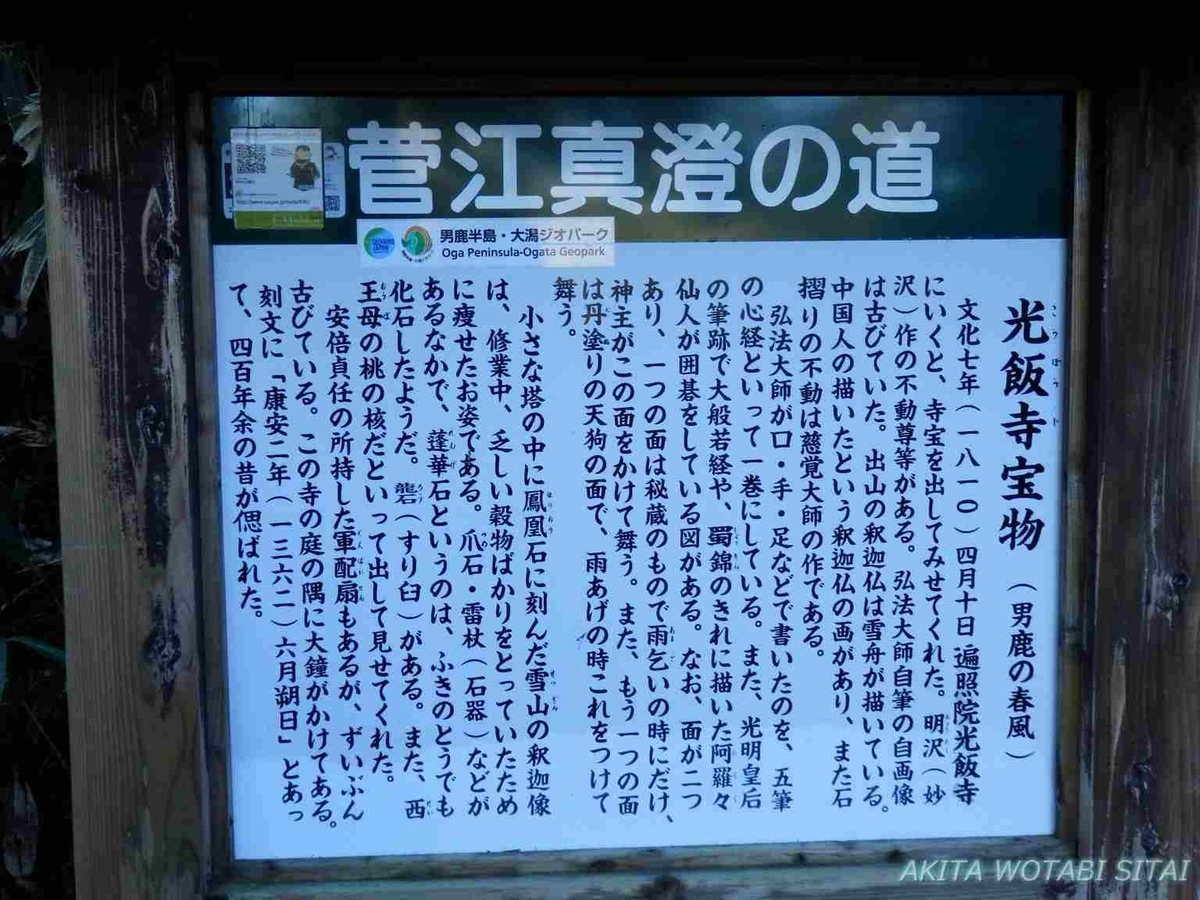 菅江真澄の道
男鹿半島・大潟ジオパーク
Oga Peninsula-Ogata Geopark
光飯寺宝物 （男鹿の春風）
文化七年（一八一〇）四月十日 遍照院光飯寺
にいくと、寺宝を出してみせてくれた。明沢（妙
沢）作の不動尊等がある。弘法大師自筆の自画像
は古びていた。出山の釈迦仏は雪舟が描いている。
中国人の描いたという釈迦仏の画があり、また石
摺りの不動は慈覚大師の作である。
弘法大師が口・手・足などで書いたのを、五筆
の心経といって一巻にしている。また、光明皇后
の筆跡で大般若経や、蜀錦のきれに描いた阿羅々
仙人が囲碁をしている図がある。なお、面が二つ
あり、一つの面は秘蔵のもので雨乞いの時にだけ、
神主がこの面をかけて舞う。また、もう一つの面
は丹塗りの天狗の面で、雨あげの時これをつけて
舞う。
小さな塔の中に鳳凰石に刻んだ雪山の釈迦像
は、修業中、乏しい穀物ばかりをとっていたため
に痩せたお姿である。爪石・雷杖（石器）などが
あるなかで、蓬華石というのは、ふきのとうでも
化石したようだ。礱（すり臼）がある。また、西
王母の桃の核だといって出して見せてくれた。
安倍貞任の所持した軍配扇もあるが、ずいぶん
古びている。この寺の庭の隅に大鐘がかけてある。
刻文に「康安二年（一三六二）六月朔日」とあっ
て、四百年余の昔が偲ばれた。
AKITA WOTABI SITAI